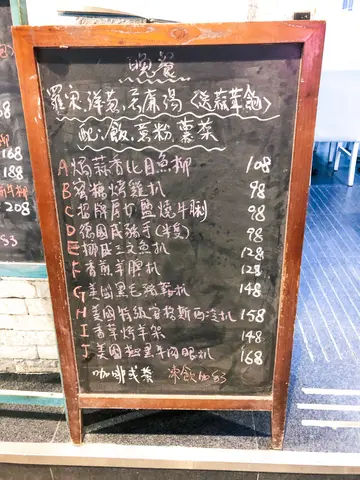 晚餐
羅宋湯 <送蒜茸包>
配:飯、意粉、薯菜
A 燒蒜香比目魚柳 108
B 蜜糖烤雞扒 98
C 招牌厚切鹽燒牛脷 98
D 德國咸豬手(半隻) 98
E 挪威三文魚扒 128
F 香煎羊髀扒 128
G 美國黑毛豬鞍扒 148
H 美國特級安格斯西冷扒 158
I 香草烤羊架 148
J 美國極黑牛肉眼扒 168
咖啡或茶 凍飲加$3
168
188
208
$3